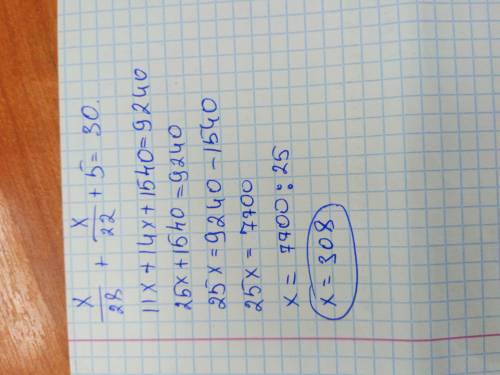 x/28 + x/22 + 5 = 30.
11x + 14x + 1540 = 9240
25x + 1540 = 9240
25x = 9240 - 1540
25x = 7700
x = 7700 : 25
x = 308